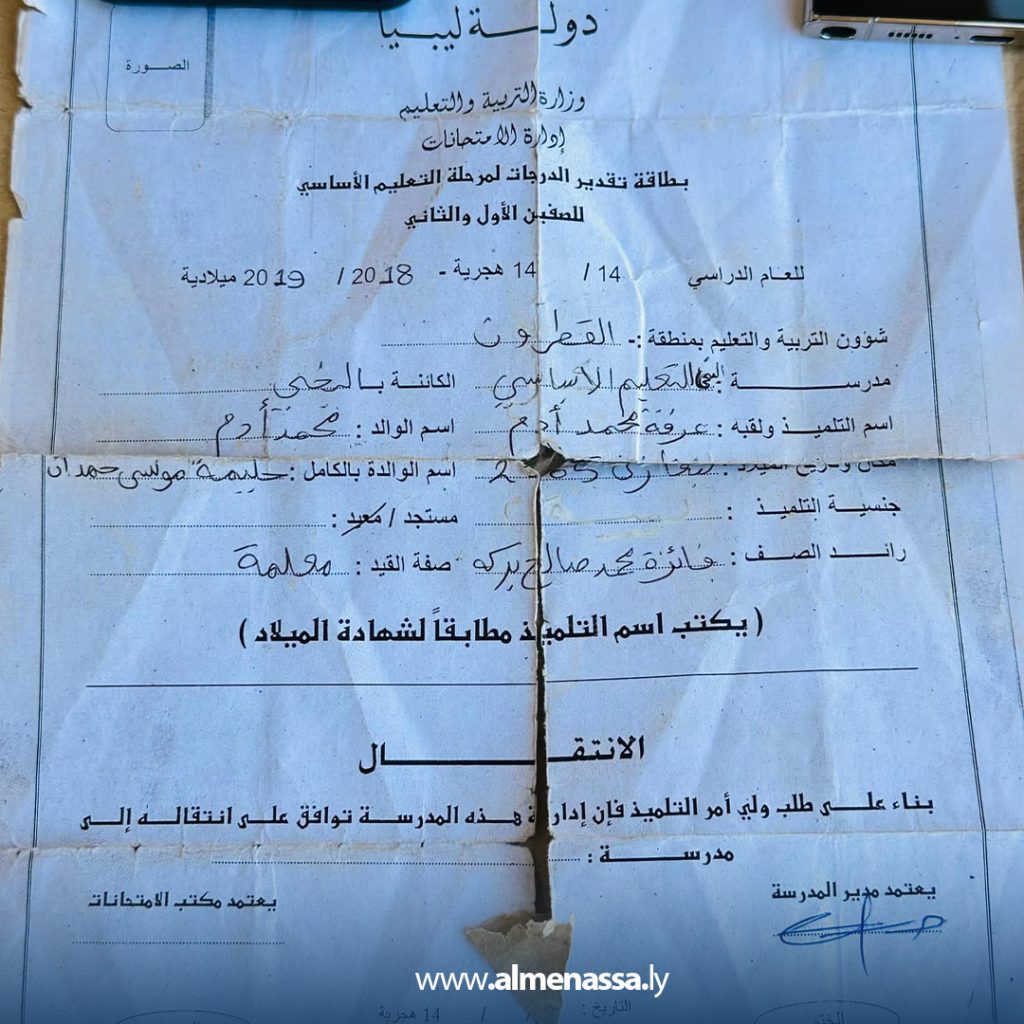 دولة ليبيا
الصورة
وزارة التربية والتعليم
إدارة الامتحانات
بطاقة تقدير الدرجات لمرحلة التعليم الأساسي
للصفين الأول والثاني
للعام الدراسي 14 / 14 هجرية - 2018 / 2019 ميلادية
شؤون التربية والتعليم بمنطقة :- القطرون
مدرسة للتعليم الأساسي الكائنة بالبخي
اسم التلميذ ولقبه : عرفة محمد أدم اسم الوالد : محمد أدم
مكان وتاريخ الميلاد : بنغازي اسم الوالدة بالكامل : حليمة موسى حمدان
جنسية التلميذ : مستجد / معيد :
رائد الصف : فائزة محمد صالح بركه صفة القيد : معلمة
( يكتب اسم التلميذ مطابقاً لشهادة الميلاد )
الانتقال
بناء على طلب ولي أمر التلميذ فإن إدارة هذه المدرسة توافق على انتقاله إلى
مدرسة :
يعتمد مدير المدرسة
يعتمد مكتب الامتحانات
www.almenassa.ly
التاريخ : / / 14 هجرية
الختم